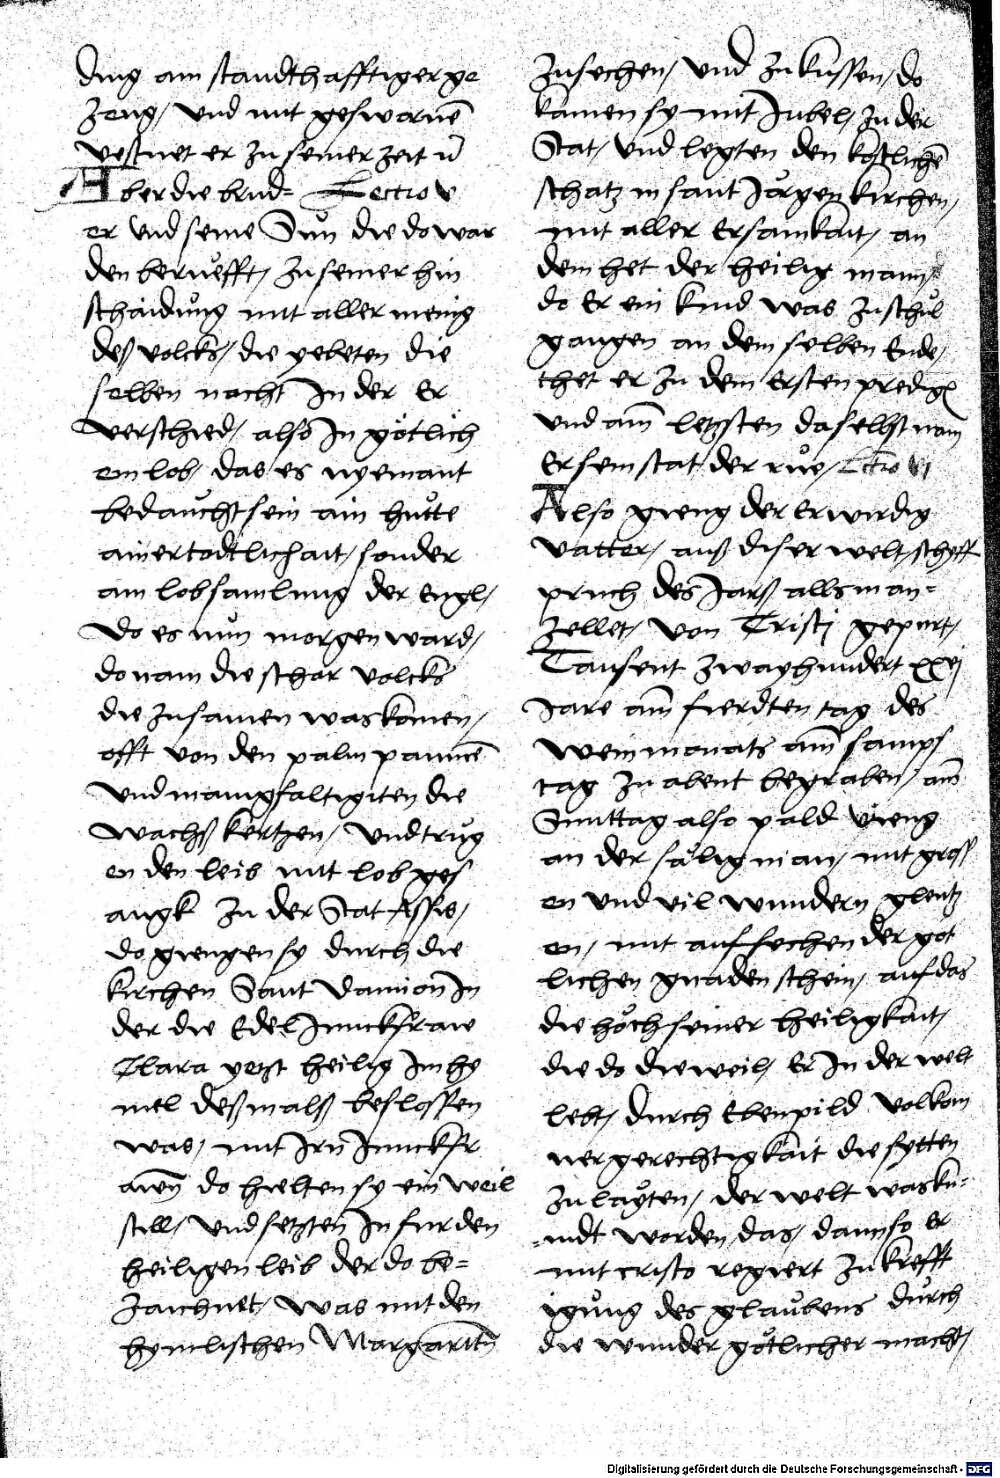 ding ain standthafftiger ge
zeug, vnd mit geswornē
vestnet er zu seiner zeit
Aber die brud= Lectio v
er vnd seine Sün die do war
den beruefft, zu seiner hin
schaidung mit aller menig
deß volcks, die yebeten die
selben nacht In der Er
verschied, also In götlich
em lob, das es nyemant
bedaucht sein ain hutte
ainer todtlichait, sonder
ain lobsamlung der Engl,
Do es nün morgen ward,
do nam die schar volcks
die zusamen was komen,
offt von den palm paumē
vnd manigfaltigiten die
wachß kertzen, vnd trug
en den leib mit lob ges
angk zu der Stat Assis,
do giengen sy durch die
kirchen Sant Damion In
der die Edel Junckfraw
Clara yetzt heilig Im hy
mel deßmalß beslossen
was, mit Irn Junckfr
awen do hielten sy ein weil
still, vnd setzten In fur den
heiligen leib der do be=
zaichnet, was mit den
hymlischen Margaritn
zu sechen, vnd zu kussen, do
kamen sy mit Jubel, zu der
Stat, vnd legten den kostlichē
schatz in sant Jörgen kirchen,
mit aller Ersamkait, an
dem het der heilig mann
do Er ein kind was zu schul
gangen an dem selben Ende,
thet er zu dem Ersten predigt
vnd am letzsten daselbst nam
Er sein stat der rue, Lectio vi
Also gieng der Erwirdig
vatter, auß diser welt schyff
pruch des Jarß alls man=
zellet, von Cristi gepurt,
Tausent zwayhundert xxvj
Jare am fierdten tag des
weinmonats am samps
tag zu abent begraben, am
Sunttag also pald vieng
an der sälig man, mit gross
en vnd vil wundern glentz
en, mit auffsechen der göt
lichen gnaden schein, auf das
die höch seiner heiligkait,
die do die weil, Er In der welt
lebt, durch Ebenpild volkom
ner gerechtigkait die sytten
zu layten, der welt was ku=
=ndt worden, das, dann so Er
mit cristo regiert zu krefft
igung des glaubens durch
die wunder götlicher macht,
Digitalisierung gefördert durch die Deutsche Forschungsgemeinschaft - DFG